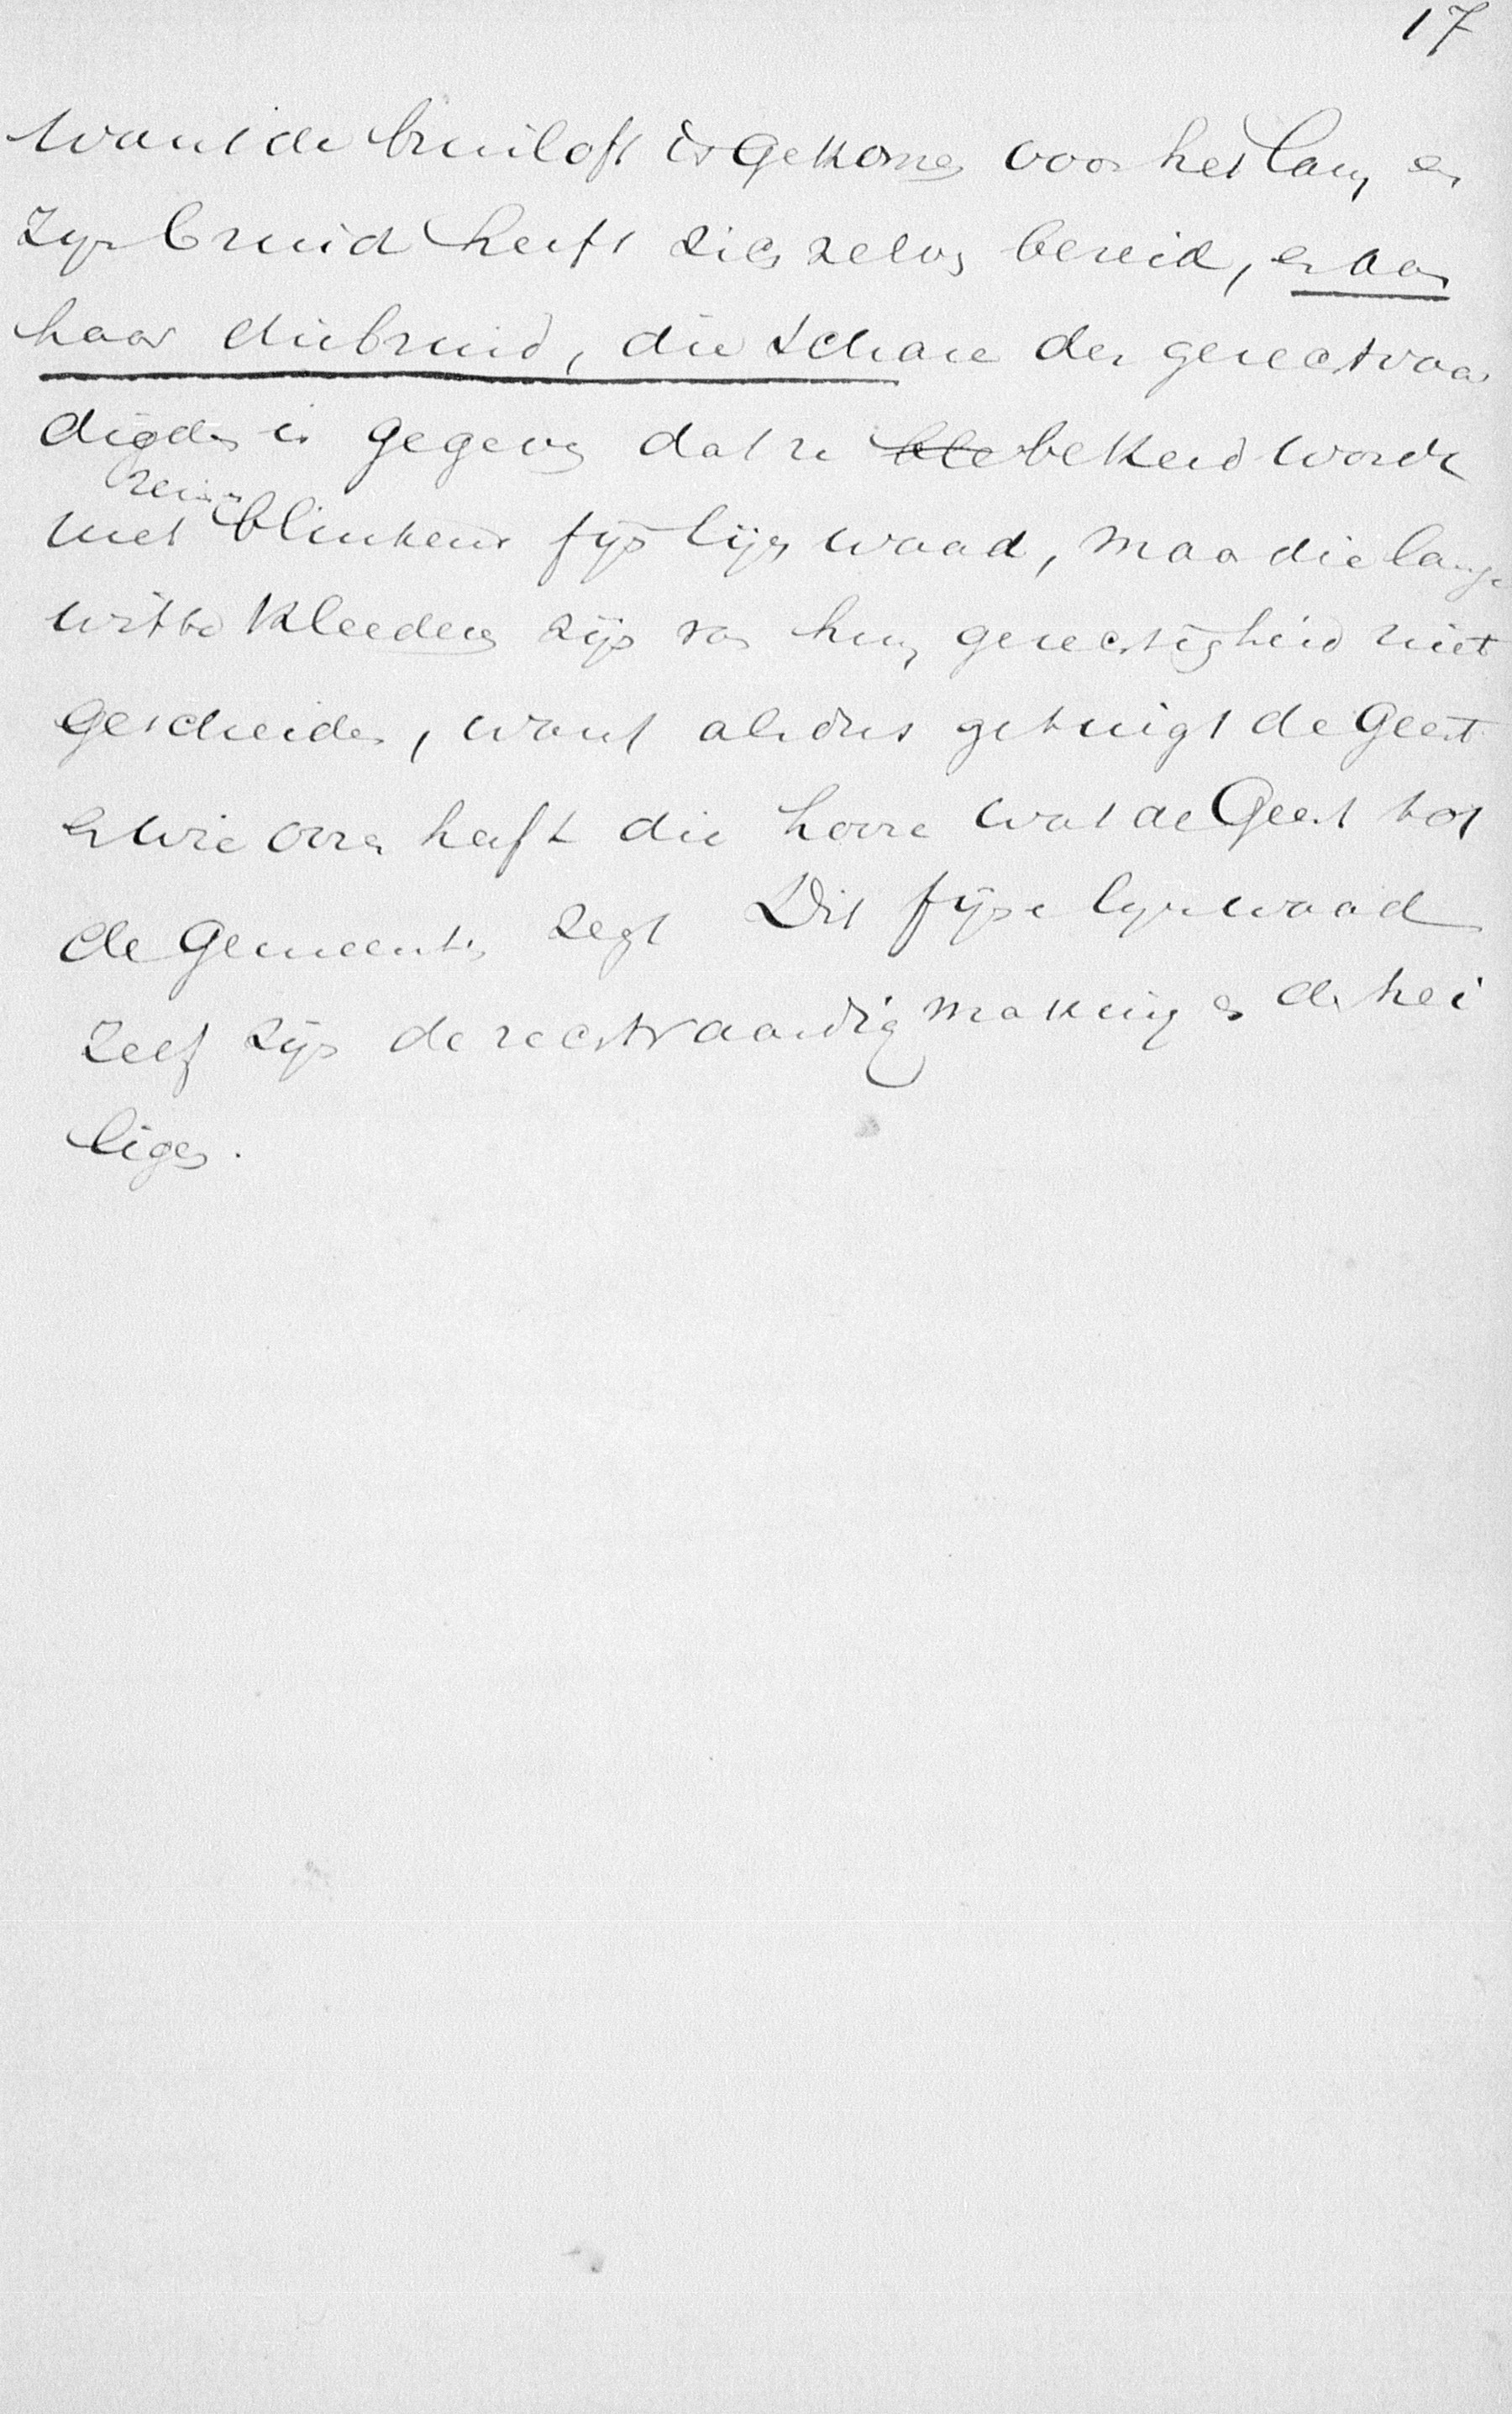 17
want de bruiloft is gekomen voor het Lam, en
zijn bruid heeft zich zelven bereid, en aan
haar die bruid, die schare der gerectvaar
digden is gegeven dat ze ble bekleed worde
met rein blinkend fijn lijn waad, maar die lange
witte kleederen zijn van hun gerechtigheid niet
gescheiden, want aldus getuigt de Geest
en wie ooren heeft die hoore wat de Geest tot
de Gemeenten zegt Dit fijne lijnwaad
zelf zijn de rechtvaardig makingen der hei
ligen.